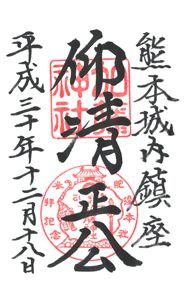 熊本城内鎮座
仰清正公
平成三十年十二月十八日
加藤神社